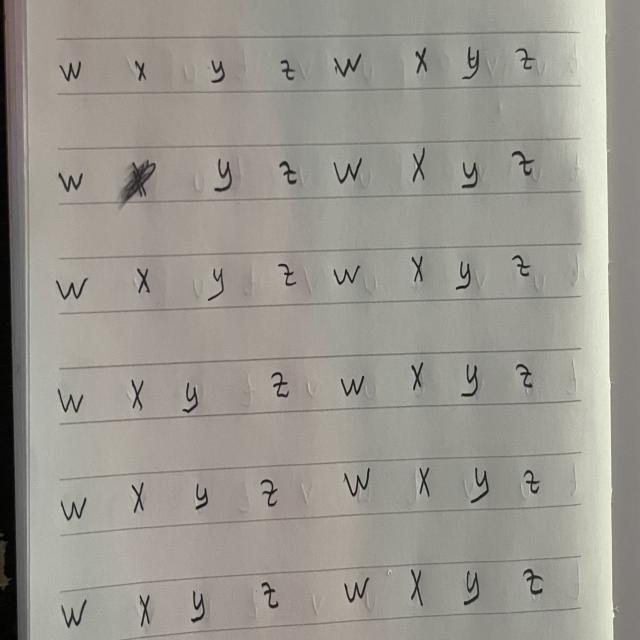 w x y z w x y z
w y z w x y z
w x y z w x y z
w x y z w x y z
w x y z w x y z
w x y z w x y z